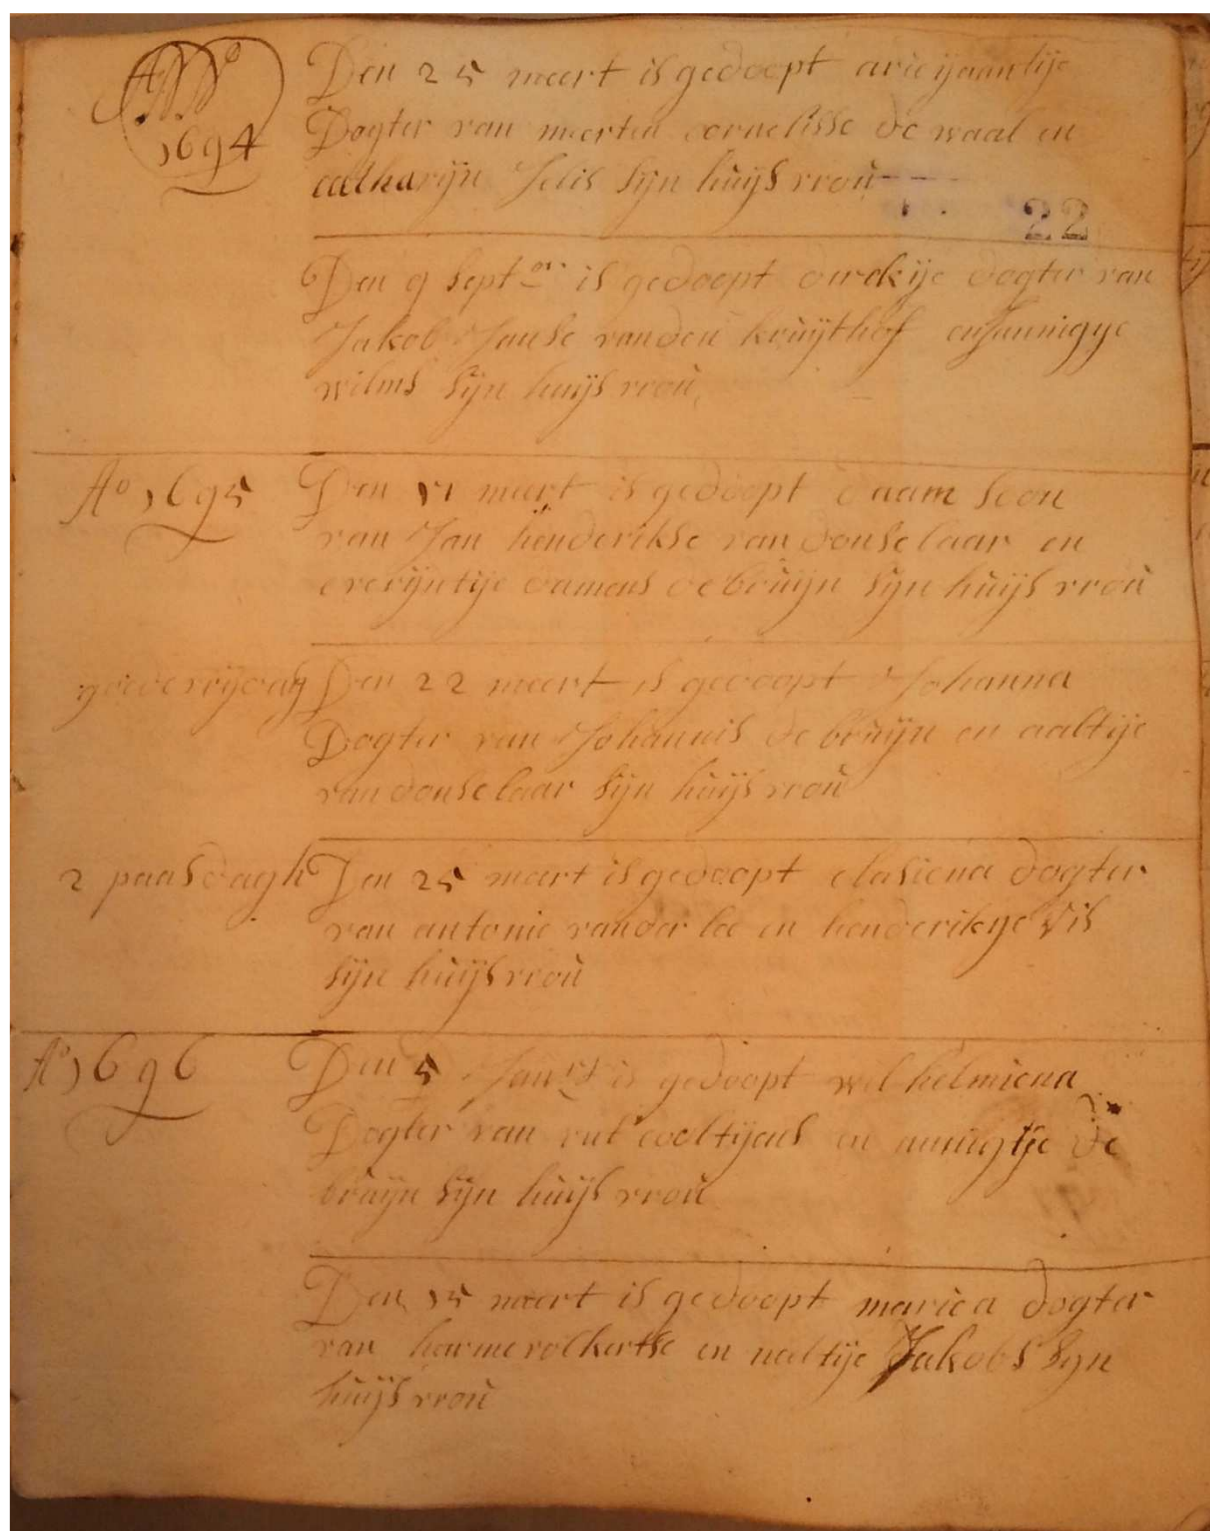 AN͞N͞o
1694
Den 25 meert is gedoopt arieijaantije
Dogter van meerten cornelisse de waal en
catharijn Jelis sijn huijs vroù
22
Den 9 septer is gedoopt dirckije dogter van
Jakob Janse vanden kruijthof en Jannigye
wilms sijn huijs vroù
Ao 1695
Den 11 meert is gedoopt daam soon
van Jan henderikse van donselaar en
everijntije damens de brùijn sijn huijs vroù
goede vrijdag
Den 22 meert is gedoopt Johanna
Dogter van Johannis de brùijn en aaltije
van donselaar sijn huijs vroù
2 paasdagh
Den 25 meert is gedoopt clasiena dogter
van antonie vander lee en henderikye Vis
sijn huijs vroù
Ao 1696
Den 5 Jan is gedoopt wilhelmiena
Dogter van rut cooltijens en annigtje de
brùijn sijn huijs vroù
Den 15 meert is gedoopt mariea dogter
van harme volkertse en neeltije Jakobs sijn
huijs vroù